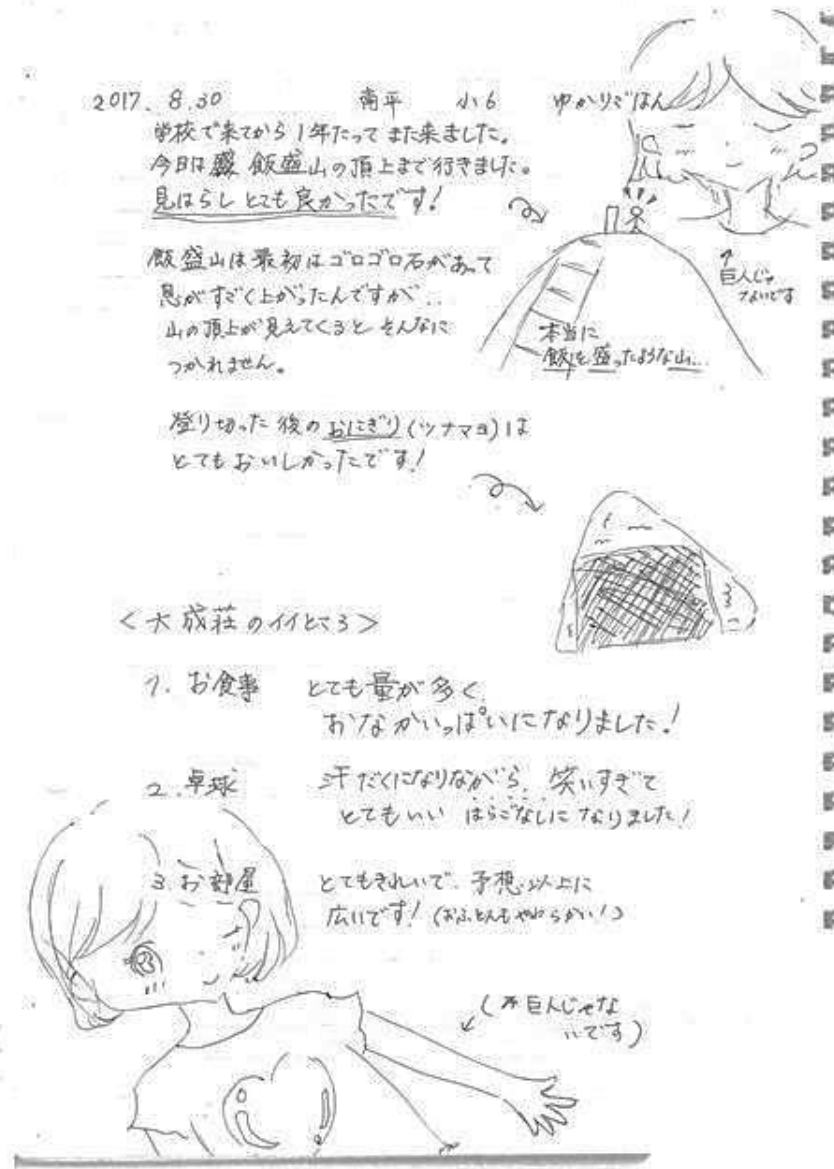 2017. 8.30 南平 小6 ゆかりごはん
学校で来てから1年たって また来ました。
今日は 飯盛山の頂上まで行きました。
見はらし とても良かったです!
飯盛山は最初はゴロゴロ石があって
息がすごく上がったんですが..
山の頂上が見えてくると そんなに
つかれません。
↑
巨人じゃ
ないです
本当に
飯を盛ったような山...
登り切った後のおにぎり(ツナマヨ)は
とてもおいしかったです!
<大成荘のイイところ>
1. お食事 とても量が多く
おなかいっぱいになりました!
2. 卓球 汗だくになりながら、笑いすぎて
とてもいい はらごなしに なりました!
3. お部屋 とてもきれいで、予想以上に
広いです! (おふとんもやわらかい!)
(巨人じゃな
いです)